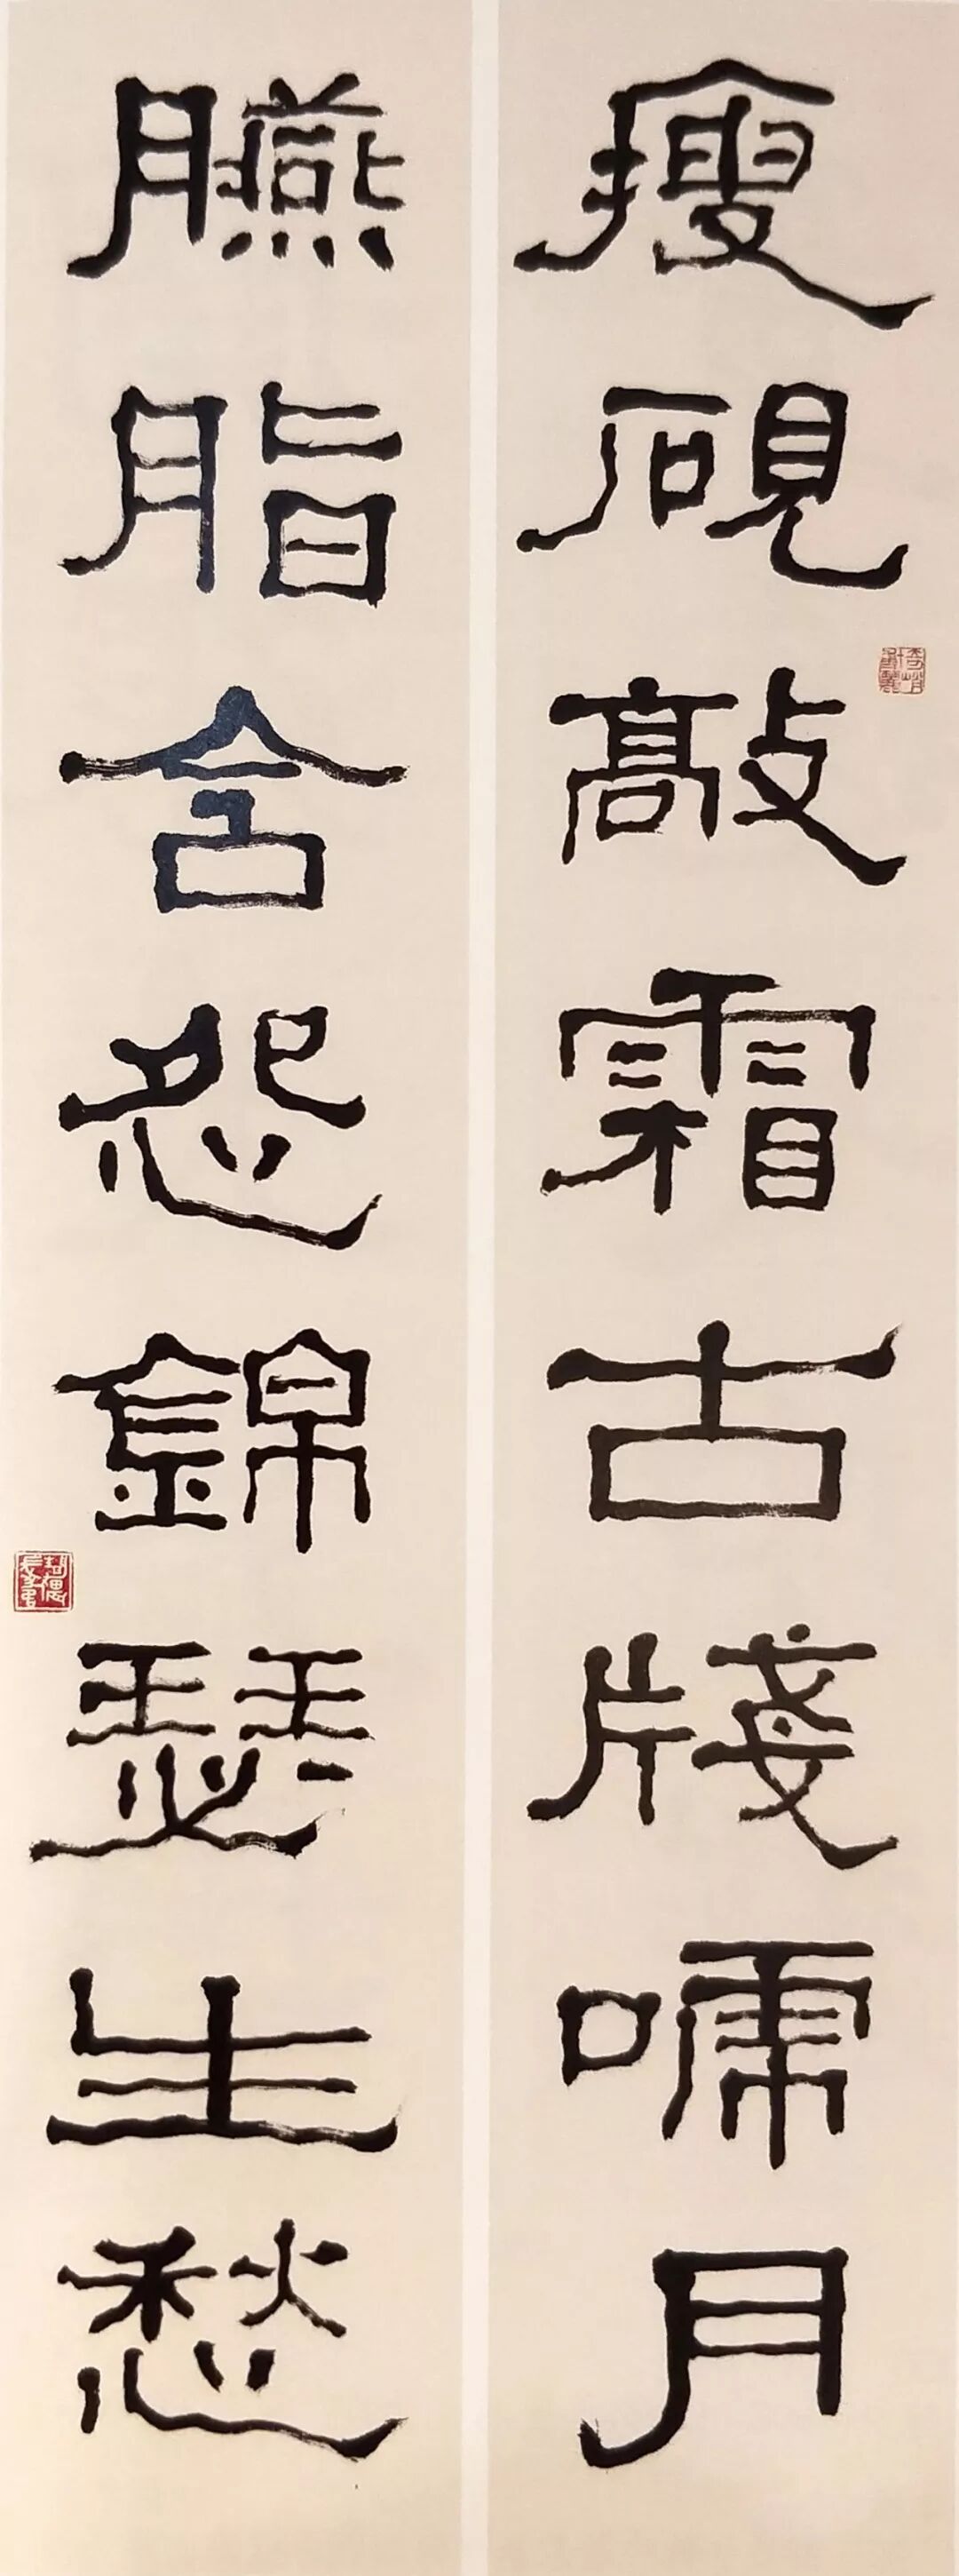 瘦硯敲霜古牋嘯月
臙脂含怨錦瑟生愁